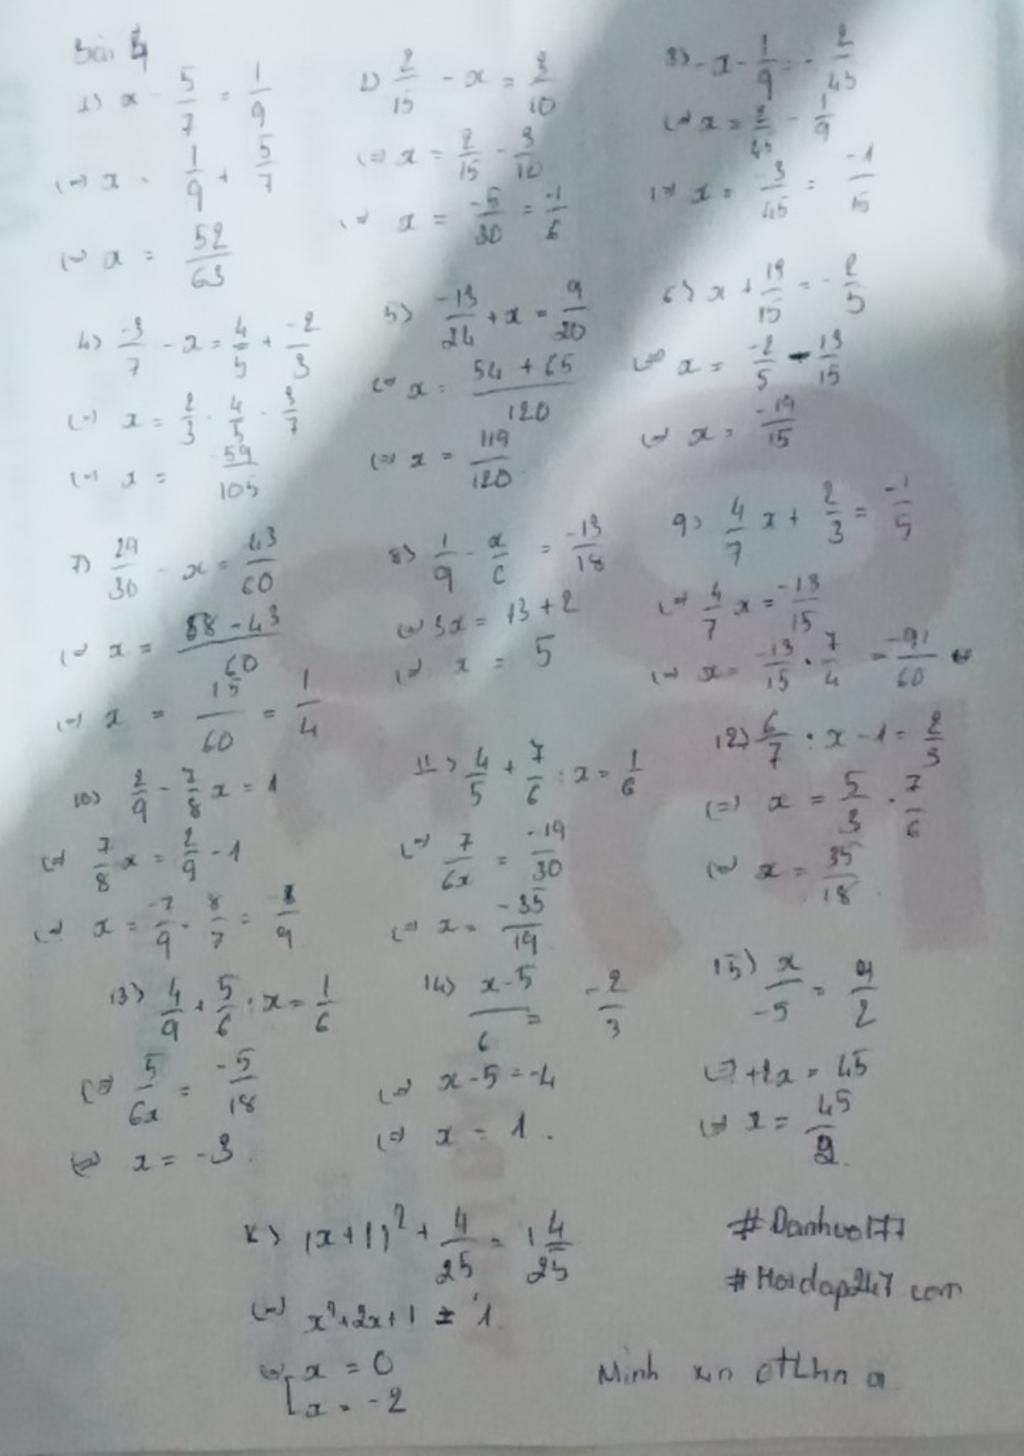 Bài 4
1) x - 5/7 = 1/9
(=) x = 1/9 + 5/7
(=) x = 52/63
2) 2/15 - x = 3/10
(=) x = 2/15 - 3/10
(=) x = -5/30 = -1/6
3) -x - 1/9 = -2/45
(=) x = 2/45 - 1/9
(=) x = -3/45 = -1/15
4) -3/7 - x = 4/5 + -2/3
(=) x = 2/3 - 4/5 - 3/7
(=) x = -59/105
5) -13/24 + x = 9/20
(=) x = 54 + 65/120
(=) x = 119/120
6) x + 13/15 = -2/5
(=) x = -2/5 - 13/15
(=) x = -19/15
7) 29/30 - x = 43/60
(=) x = 58 - 43/60
(=) x = 15/60 = 1/4
8) 1/9 - x/6 = -13/18
(=) 3x = 13 + 2
(=) x = 5
9) 4/7 x + 2/3 = -1/5
(=) 4/7 x = -13/15
(=) x = -13/15 . 7/4 = -91/60
10) 2/9 - 7/8 x = 1
(=) 7/8 x = 2/9 - 1
(=) x = -7/9 . 8/7 = -8/9
11) 4/5 + 7/6 : x = 1/6
(=) 7/6x = -19/30
(=) x = -35/19
12) 6/7 . x - 1 = 2/3
(=) x = 5/3 . 7/6
(=) x = 35/18
13) 4/9 + 5/6 : x = 1/6
(=) 5/6x = -5/18
(=) x = -3
14) x-5/6 = -2/3
(=) x - 5 = -4
(=) x = 1.
15) x/-5 = 9/2
(=) +2x = 45
(=) x = 45/2
(x + 1)² + 4/25 = 1 4/25
(=) x² + 2x + 1 = 1
(=) x = 0
[x = -2
#Danhvo177
#Hoidap247 com
Minh xin ctlhn ạ